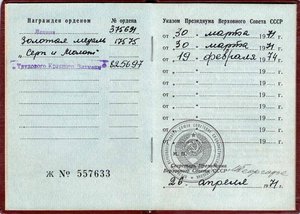 Награжден орденом № ордена
Ленина 375691
Золотая медаль 17575
"Серп и Молот"
Трудового Красного Знамени 825697
Ж № 557633
Указом Президиума Верховного Совета СССР
от 30 марта 1971
от 30 марта 1971
от 19 февраля 1974
от 19 г.
от 19 г.
от 19 г.
от 19 г.
от 19 г.
М. П.
Секретарь Президиума
Верховного Совета СССР
26 апреля 1971